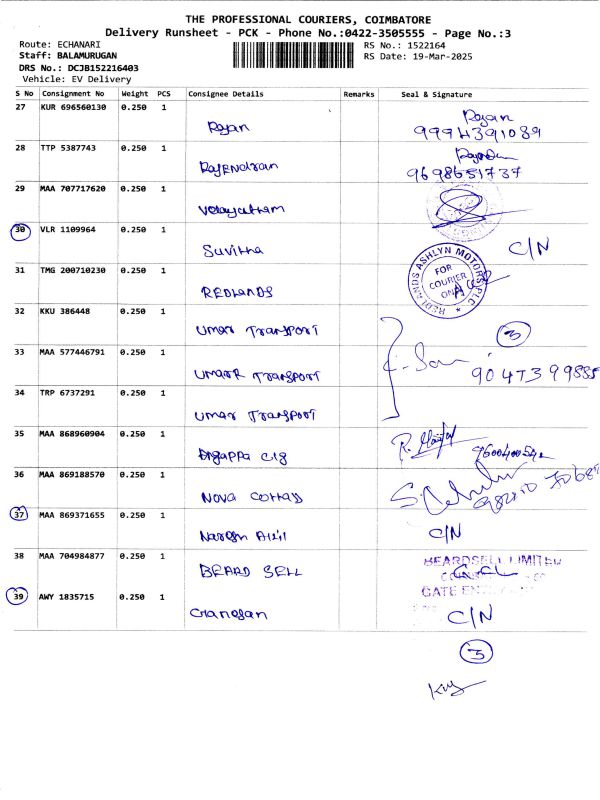 THE PROFESSIONAL COURIERS, COIMBATORE
Delivery Runsheet - PCK - Phone No.:0422-3505555 - Page No.:3
Route: ECHANARI
RS No.: 1522164
Staff: BALAMURUGAN
RS Date: 19-Mar-2025
DRS No.: DCJB152216403
Vehicle: EV Delivery
S No Consignment No Weight PCS Consignee Details Remarks Seal & Signature
27 KUR 696560130 0.250 1 Rajan Rajan
9994391089
28 TTP 5387743 0.250 1 Rajendran
9698651737
29 MAA 707717620 0.250 1
30 VLR 1109964 0.250 1 Suvitha C/N
31 TMG 200710230 0.250 1 REDLANDS
REDLANDS ASHLYN MOTORS PLC
FOR
COURIER
ONLY
32 KKU 386448 0.250 1 Umar Transport 3
33 MAA 577446791 0.250 1 Umar Transport
9047399885
34 TRP 6737291 0.250 1 Umar Transport
35 MAA 868960904 0.250 1
36 MAA 869188570 0.250 1 Nova
37 MAA 869371655 0.250 1 Naresh C/N
38 MAA 704984877 0.250 1 BEARD SELL
BEARDSELL LIMITED
39 AWY 1835715 0.250 1 C/N
3